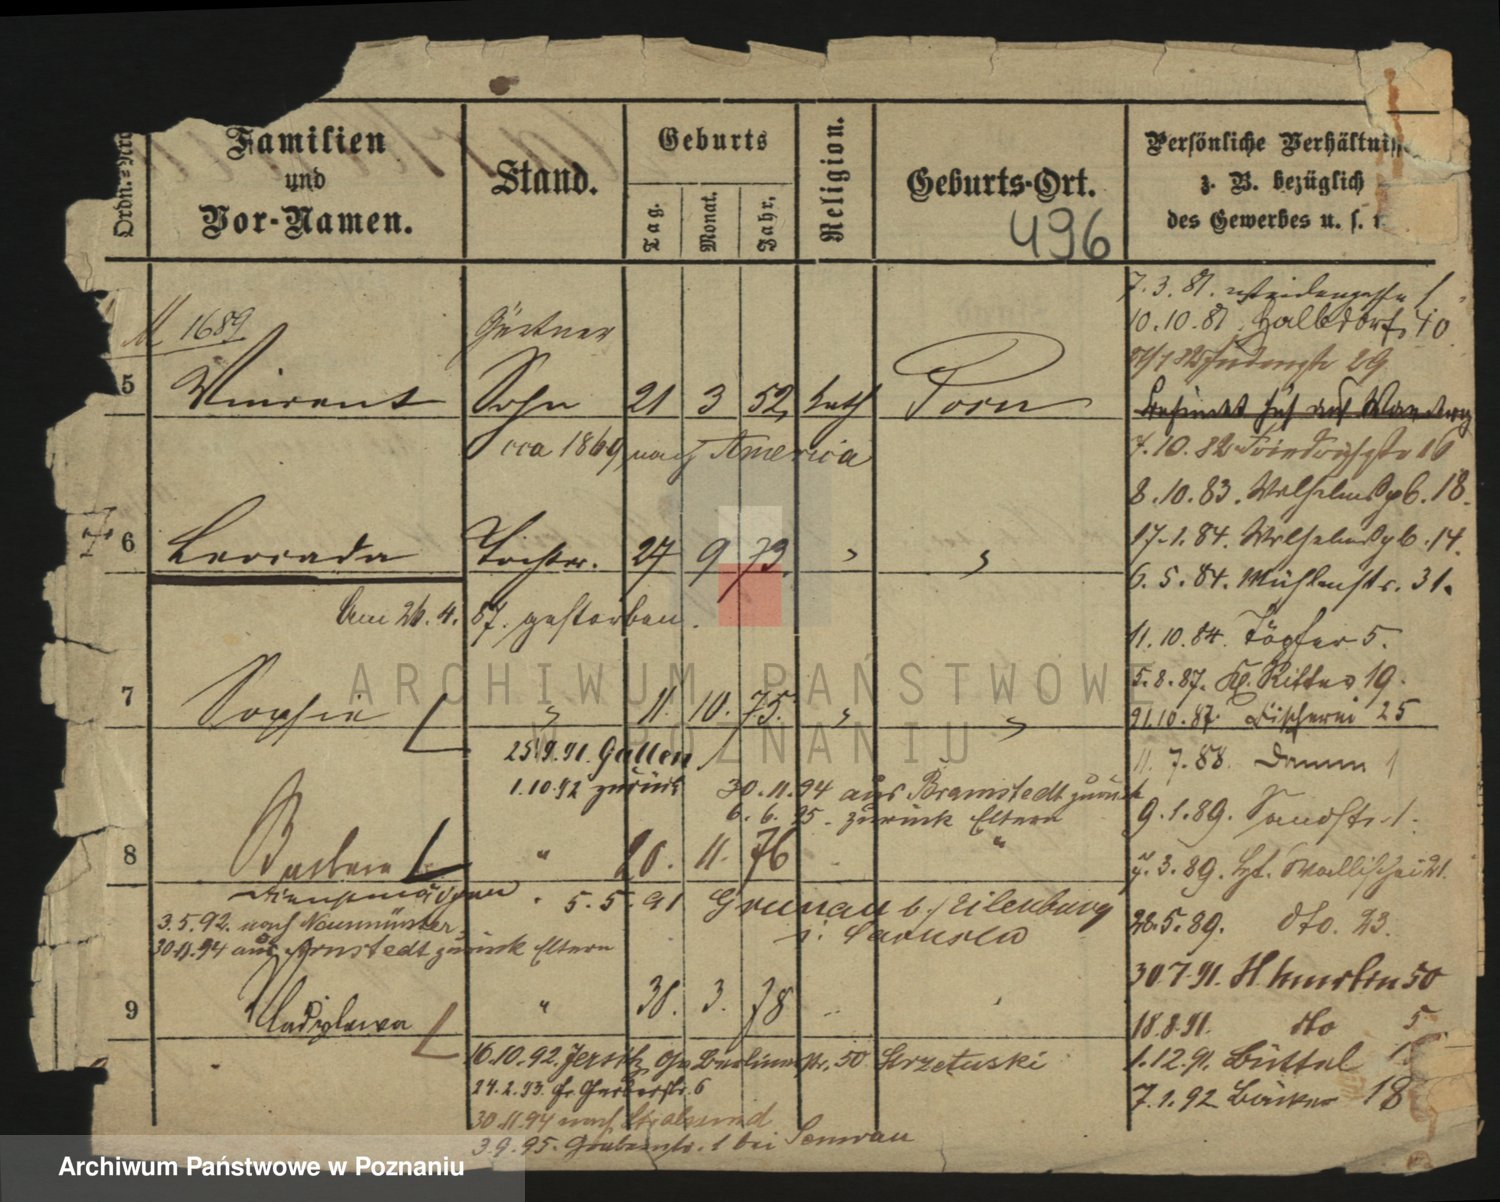 Ordn.=Nro
Familien
und
Vor-Namen.
Stand.
Geburts
Tag.
Monat.
Jahr.
Religion.
Geburts-Ort.
496
Persönliche Verhältniss
z. B. bezüglich
des Gewerbes u. s.
M 1689
Gärtner
5 Vincent Sohn 21 3 52 kath Posen
cca 1869 nach America
6 Leocada Tochter. 27 9 73. " "
Am 26.4.87. gestorben.
7 Sophie " 11. 10. 75. " "
25.9.91. Gallen
1.10.92 zurück
30.11.94 aus Bramstedt zurück
6.6.95. zurück Eltern
8 Barbara " 20. 11. 76 "
Dienstmädchen
5.5.91 Grunau b./Eilenburg
i. Sachsen
3.5.92. nach Neumünster.
30.11.94 aus Arnstedt zurück Eltern
9 Vladislawa " 3. 78
16.10.92. Jersitz, Gr. Berlinerstr. 50 Strzetuski
24.2.93. Gr. Gerberstr. 6
30.11.94 nach Stralsund
3.9.95. 1 bei
7.3.81.
10.10.81. Halbdorfs. 40
29
befindet sich auf Wanderung
7.10.82 Friedrichstr 16
8.10.83. Wilhelmspl. 18.
17.1.84. Wilhelmspl. 14.
6.5.84. Mühlenstr. 31.
11.10.84. Töpfer 5.
5.8.87. Kl. Ritter 19.
21.10.87. Fischerei 25
11.7.88. Damm 1
9.1.89. Sandstr. 1.
3.89. Wallischei 21.
28.5.89. dto. 23.
30.7.91. 50
18.8.91. dto 5
1.12.91. Büttel
7.1.92 Bäcker 18
ARCHIWUM PAŃSTWOWE
W POZNANIU
Archiwum Państwowe w Poznaniu